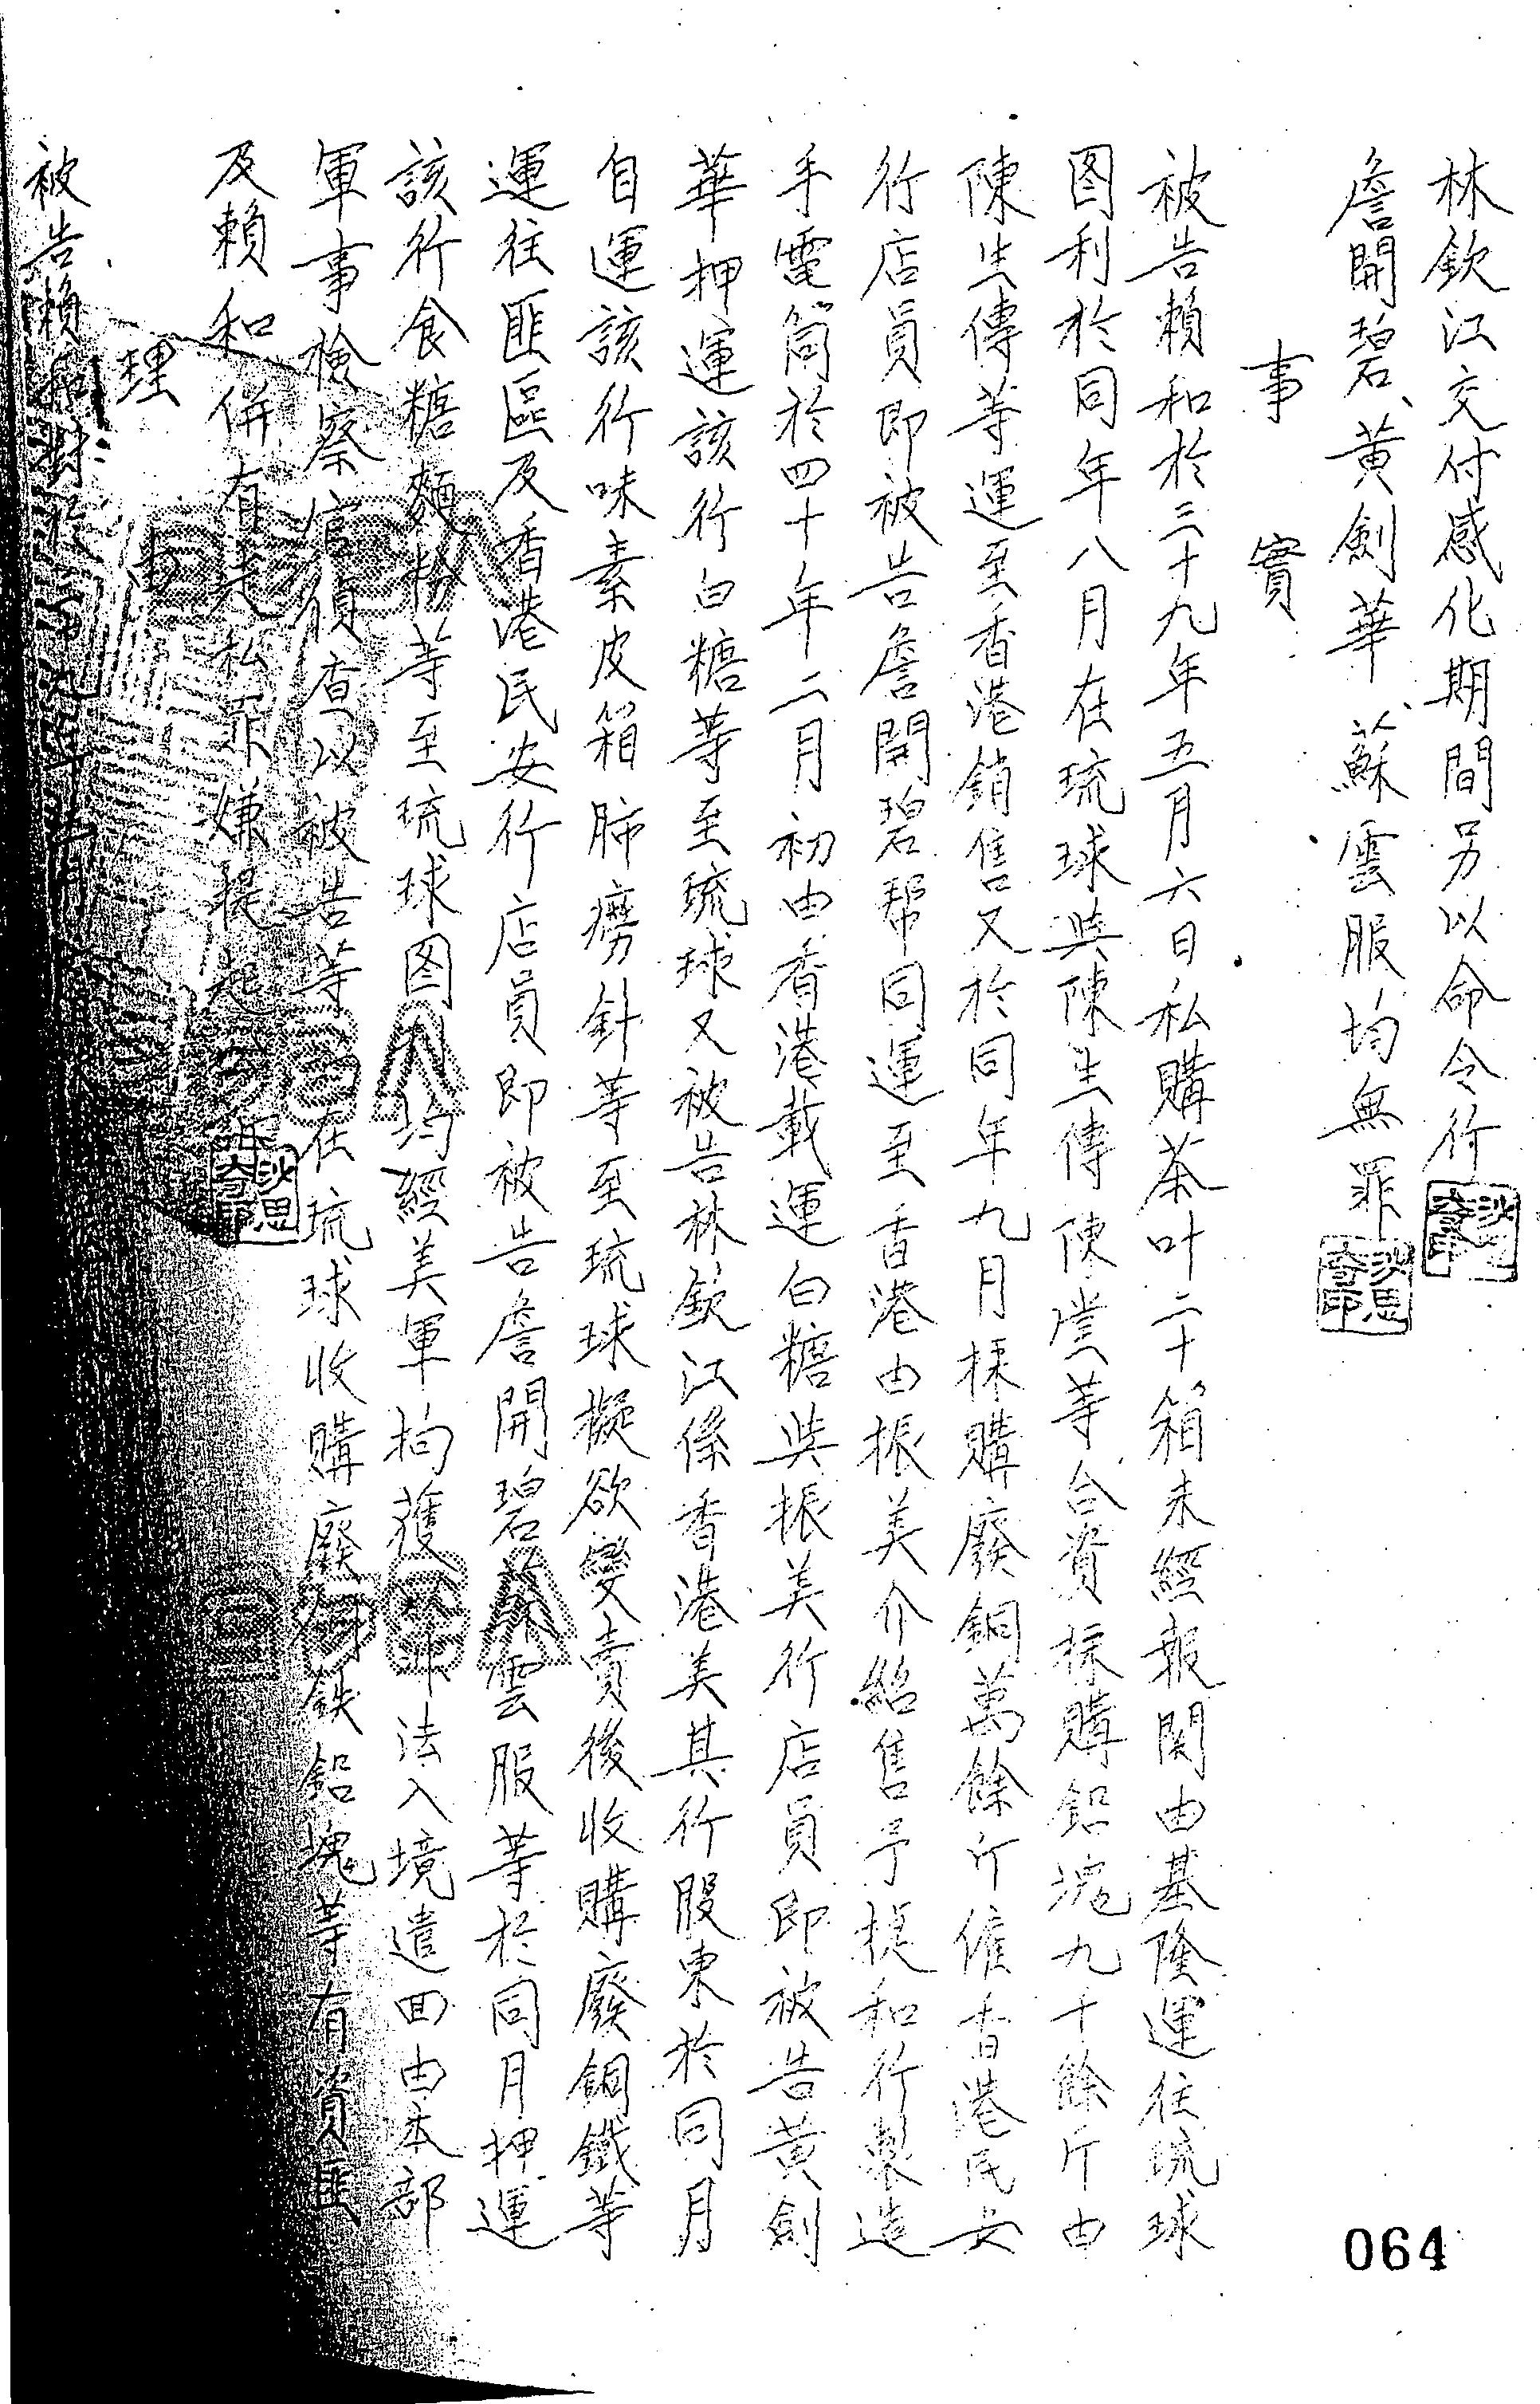 林欽江交付感化期間另以命令行
詹開碧、黃劍華、蘇雲服均無罪
事實
被告賴和於三十九年五月六日私購茶叶二十箱未經報関由基隆運往琉球
图利於同年八月在琉球與陳生傳陳堂等合資採購鉛塊九千餘斤由
陳生傳等運至香港銷售又於同年九月採購廢銅萬餘斤僱香港民安
行店員即被告詹開碧帮同運至香港由振美介紹售予捷和行製造
手電筒於四十年二月初由香港載運白糖與振美行店員即被告黃劍
華押運該行白糖等至琉球又被告林欽江係香港美其行股東於同月
自運該行味素皮箱肺癆針等至琉球擬欲變賣後收購廢銅鐵等
運往匪區及香港民安行店員即被告詹開碧蘇雲服等於同月押運
該行食糖麵粉等至琉球图利均經美軍拘獲以非法入境遣回由本部
軍事檢察官偵查以被告等均在琉球收購廢銅鉄鉛塊等有資匪
及賴和併有走私罪嫌提起公訴
理由
被告賴和對於
064